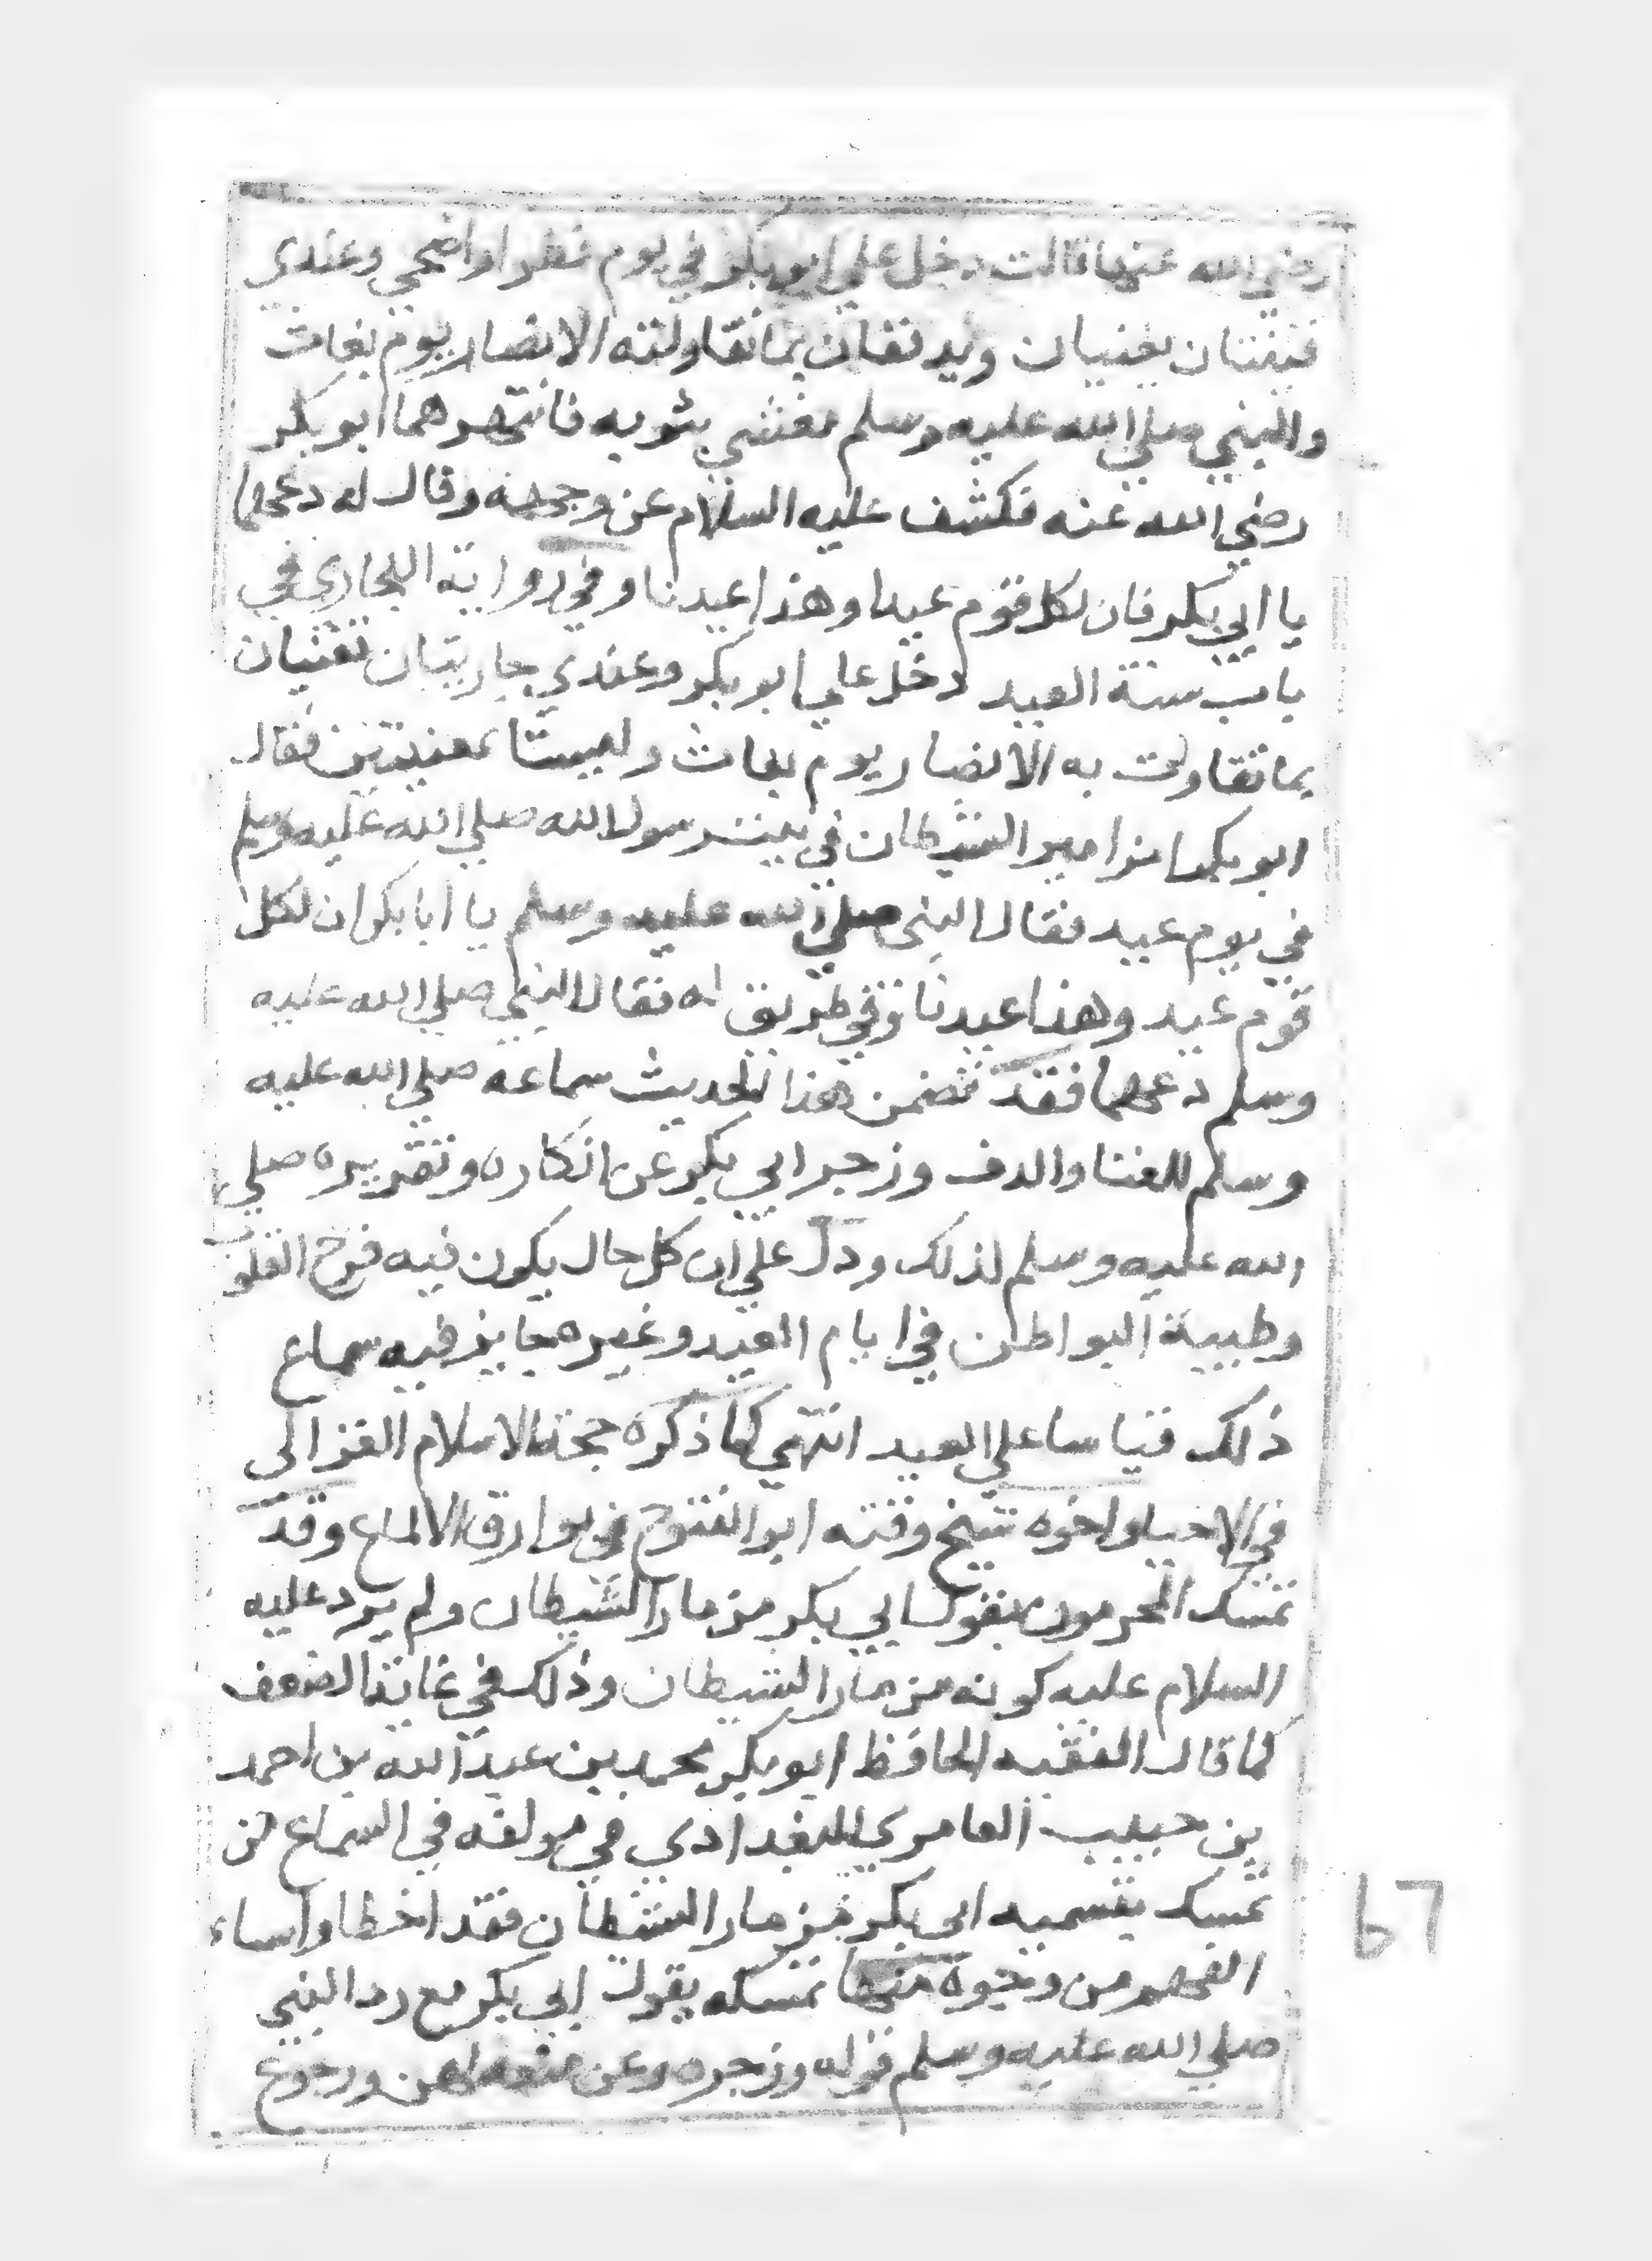 رضي الله عنها قالت دخل علي ابو بكر في يوم فطر او اضحي وعندي
قينتان يغنيان ويدففان بما تقاولته الانصار يوم بعاث
والنبي صلي الله عليه وسلم مغشي بثوبه فانتهرهما ابو بكر
رضي الله عنه فكشف عليه السلام عن وجهه وقال له دعهما
يا ابي بكر فان لكل قوم عيدا وهذا عيدنا وفي رواية البخاري في
باب سنة العيد دخل علي ابو بكر وعندي جاريتان تغنيان
بما تقاولت به الانصار يوم بعاث وليستا بمغنيتين فقال
ابو بكر امزامير الشيطان في بيت رسول الله صلي الله عليه وسلم
في يوم عيد فقال النبي صلي الله عليه وسلم يا ابا بكر ان لكل
قوم عيد وهذا عيدنا وفي طريق له فقال النبي صلي الله عليه
وسلم دعهما فقد تضمن هذا الحديث سماعه صلي الله عليه
وسلم للغنا والدف وزجر ابي بكر عن انكاره وتقريره صلي
الله عليه وسلم لذلك ودل علي ان كل حال يكون فيه فرح القلوب
وطيبة البواطن في ايام العيد وغيره جايز فيه سماع
ذلك قياسا علي العيد انتهي كما ذكره حجة الاسلام الغزالي
في الاحيا واخوه شيخ وقته ابو الفتوح في بوارق الالماع وقد
تمسك المحرمون بقول ابي بكر مزمار الشيطان ولم يرد عليه
السلام عليه كونه مزمار الشيطان وذلك في غاية الضعف
كما قال الفقيه الحافظ ابو بكر محمد بن عبد الله بن احمد
بن حبيب العامري البغدادي في مولفه في السماع من
تمسك بتسميه ابي بكر مزمار الشيطان فقد اخطا واساء
الفهم من وجوه منها تمسكه بقول ابي بكر مع رد النبي
صلي الله عليه وسلم قوله وزجره وعن منعه لهن ورجوع
٦٧